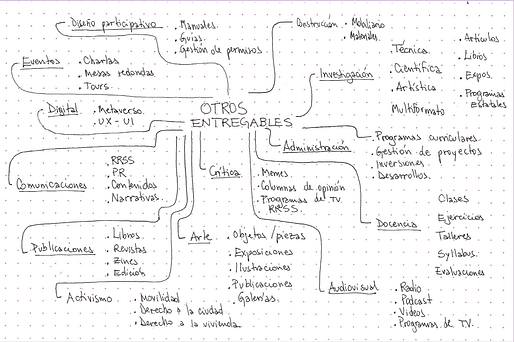 OTROS
ENTREGABLES
Diseño participativo
. Manuales.
. Guías.
. Gestión de permisos
Construcción
. Mobiliario
. Materiales
Eventos
. Charlas
. Mesas redondas
. Tours.
Investigación
Técnica.
Científica
. Artística
Multiformato
. Artículos
. Libros
. Expos.
. Programas
Estatales
Digital
. Metaverso.
. UX-UI
Administración
. Programas curriculares.
. Gestión de proyectos
. Inversiones
. Desarrollos.
Comunicaciones
. RRSS
. PR
. Contenidos
. Narrativas.
Crítica
. Memes.
. Columnas de opinión
. Programas de TV.
RRSS.
Docencia
Clases
Ejercicios
Talleres
Syllabus.
Evaluaciones
Publicaciones
. Libros.
. Revistas
. Zines
. Edición
Arte
. Objetos/piezas
. Exposiciones
. Ilustraciones
. Publicaciones
. Galerías.
Audiovisual
. Radio
. Podcast
. Videos
. Programas de TV.
Activismo
. Movilidad
. Derecho a la ciudad
. Derecho a la vivienda